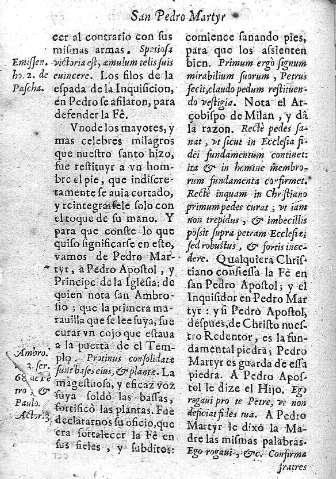 San Pedro Martyr
cer al contrario con sus
mismas armas. Speciosa
victoria est, æmulum telis suis
Emissen.
ho. 2. de
Pascha.
euincere. Los filos de la
espada de la Inquisicion,
en Pedro se afilaron, para
defender la Fè.
Vno de los mayores, y
mas celebres milagros
que nuestro santo hizo,
fue restituyr a vn hom
bre el pie, que indiscre-
tamente se auia cortado,
y reintegrarsele solo con
el toque de su mano. Y
para que conste lo que
quiso significarse en esto,
vamos de Pedro Mar-
tyr, a Pedro Apostol, y
Principe de la Iglesia; de
quien nota san Ambro-
sio; que la primera ma-
rauilla que se lee suya, fue
curar vn cojo que estaua
a la puerta de el Tem-
plo. Protinus consolidatæ
Ambro.
to. 3. ser.
68 de Pe
tro, &
Paulo.
Actor. 3.
sunt bases eius, & plantæ. La
magestuosa, y eficaz voz
suya soldò las bassas,
fortificò las plantas. Fue
declararnos su oficio, que
era fortalecer la Fè en
sus fieles, y subditos:
comience sanando pies,
para que los assienten
bien. Primum ergò signum
mirabilium suorum, Petrus
fecit, claudo pedum restituen-
do vestigia. Nota el Ar-
çobispo de Milan, y dà
la razon. Rectè pedes sa-
nat, vt sicut in Ecclesia fi-
dei fundamentum continet:
ita & in homine membro-
rum fundamenta confirmet.
Rectè inquam in Christiano
primum pedes curat, vt iam
non trepidus, & imbecillis
possit supra petram Ecclesiæ;
sed robustus, & fortis ince-
dere. Qualquiera Chris-
tiano confiessa la Fè en
san Pedro Apostol; y el
Inquisidor en Pedro Mar
tyr: y si Pedro Apostol,
despues, de Christo nuestro
Redentor, es la fun-
damental piedra; Pedro
Martyr es guarda de essa
piedra. A Pedro Apos-
tol le dize el Hijo. Ego
rogaui pro te Petre, vt non
deficiat fides tua. A Pedro
Martyr le dixo la Ma-
dre las mismas palabras.
Ego rogaui, &c. Confirma
fratres